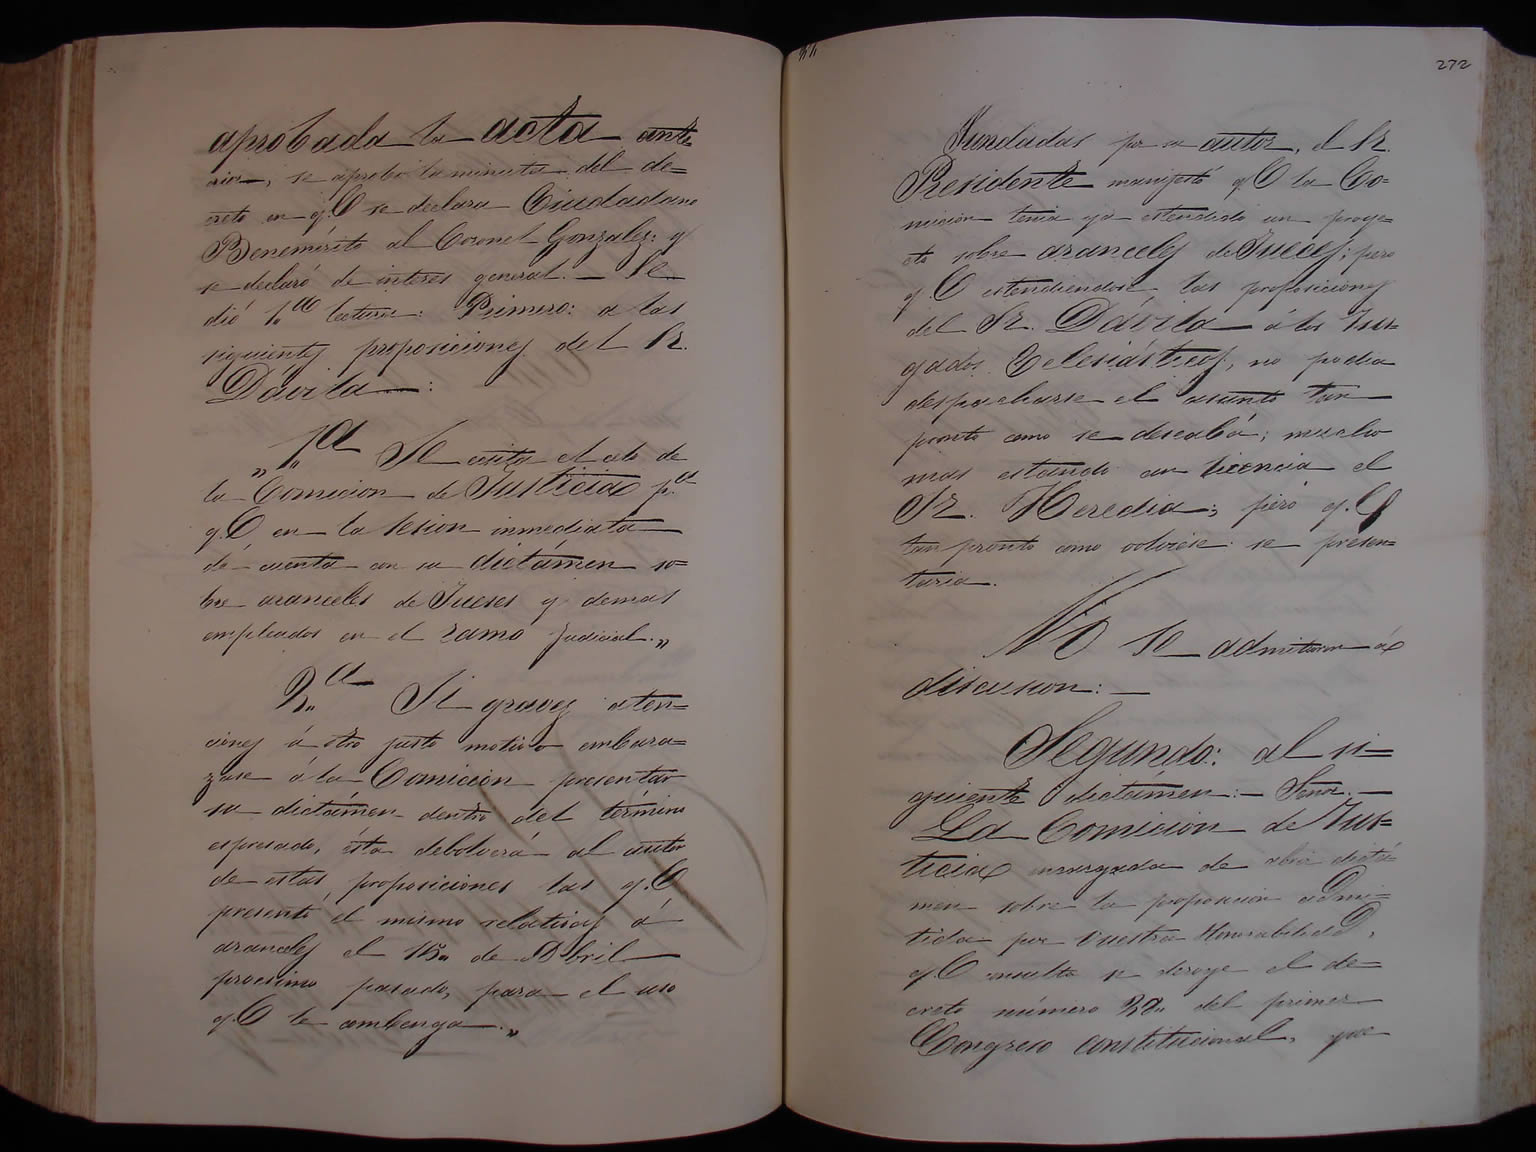 aprobada la acta ante
rior, se aprobó la minuta del de=
creto en q.e se declara Ciudadano
Benemérito al Coronel Gonzalez: y
se declaró de interes general. — Se
dió 1.a lectura: Primero: a las
siguientes proposiciones del Sr.
Dávila —:
„1.a Se exita el celo de
la Comicion de Justicia p.a
q.e en la sesion inmediata
dé cuenta con su dictámen so=
bre aranceles de Jueses y demas
empleados en el ramo judicial.„
2.a Si graves aten=
ciones ú otro justo motivo embara=
zase á la Comición presentar
su dictámen dentro del término
espresado, ésta debolverá al autor
de estas proposiciones las q.e
presentó el mismo relativas á
aranceles el 15 de Abril
procsimo pasado, para el uso
q.e le combenga.„
272
Fundadas por su autor, el Sr.
Presidente manifestó q.e la Co=
micion tenia ya estendido un proye=
cto sobre aranceles de Jueces; pero
q.e estendiendose las proposiciones
del Sr. Dávila á los Jus=
gados Eclesiásticos, no podia
despacharse el asunto tan
pronto como se deseaba; mucho
mas estando con licencia el
Sr. Heredia; pero q.e
tan pronto como volviese se presen=
taria.
No se admitieron á
discusion: —
Segundo: al si=
guiente dictámen: — Señor. —
La Comicion de Jus=
ticia encargada de abrir dictá=
men sobre la proposicion admi=
tida por Vuestra Honorabilidad,
q.e consulta se deroge el de=
creto número 32 del primer
Congreso constitucional, que